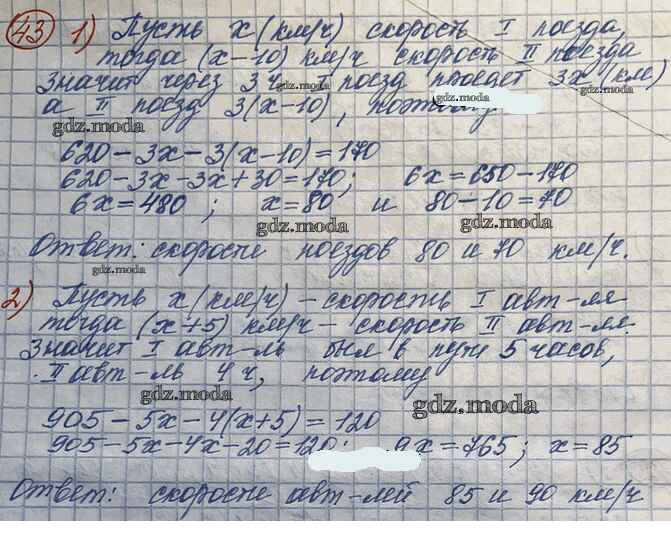 43 1) Пусть x (км/ч) скорость I поезда,
тогда (x-10) км/ч скорость II поезда
Значит через 3 ч I поезд проедет 3x (км)
а II поезд 3(x-10), поэтому
620-3x-3(x-10)=170
620-3x-3x+30=170; 6x=650-170
6x=480; x=80 и 80-10=70
Ответ: скорости поездов 80 и 70 км/ч.
2) Пусть x (км/ч) - скорость I авт-ля
тогда (x+5) км/ч - скорость II авт-ля.
Значит I авт-ль был в пути 5 часов,
II авт-ль 4 ч, поэтому
905-5x-4(x+5)=120
905-5x-4x-20=120; 9x=765; x=85
Ответ: скорости авт-лей 85 и 90 км/ч
gdz.moda
gdz.moda
gdz.moda
gdz.moda
gdz.moda
gdz.moda
gdz.moda
gdz.moda
gdz.moda